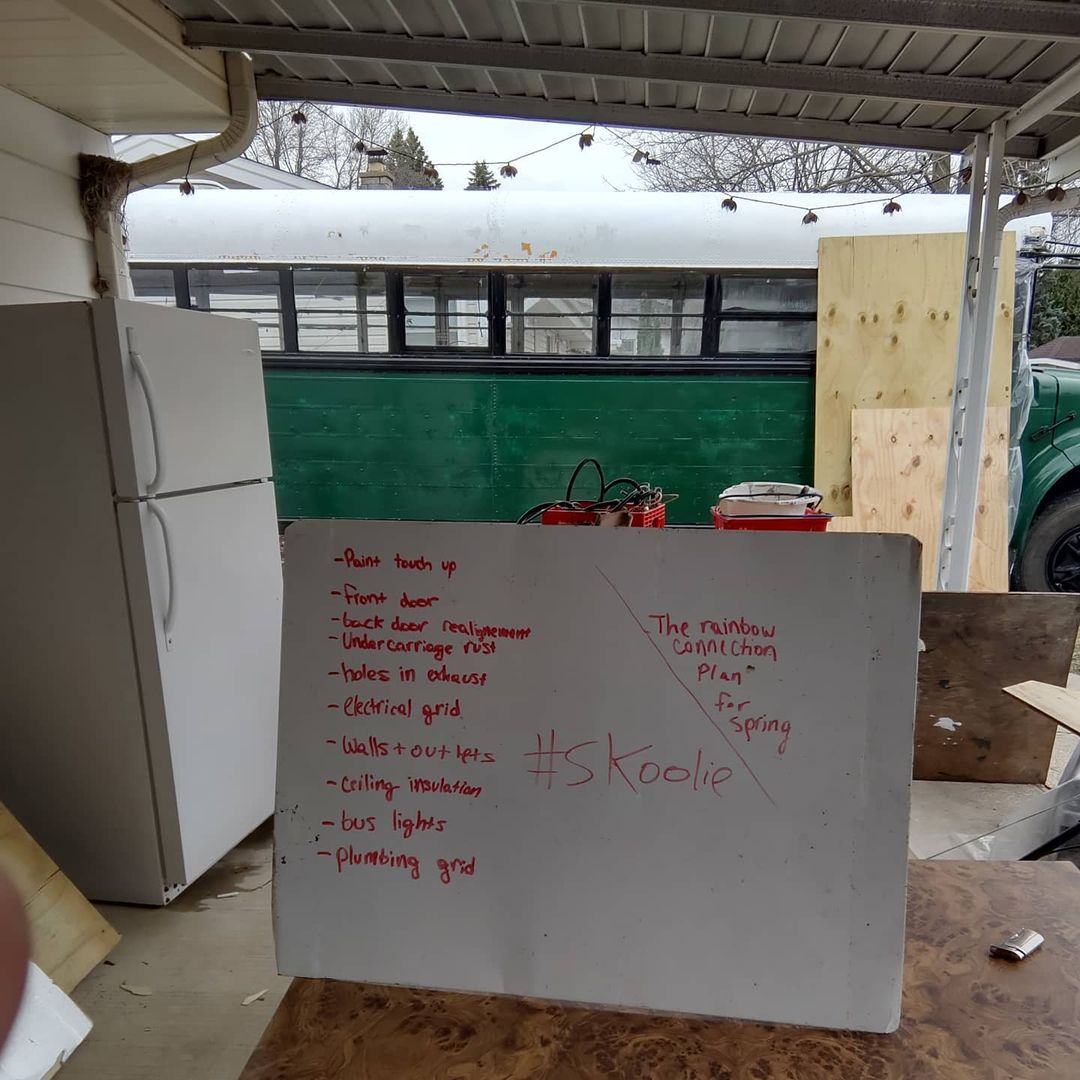 -Paint touch up
-front door
-back door realignement
-Undercarriage rust
-holes in exhaust
-electrical grid
-Walls + outlets
-ceiling insulation
-bus lights
-plumbing grid
The rainbow
connection
Plan"
for
spring
#SKoolie